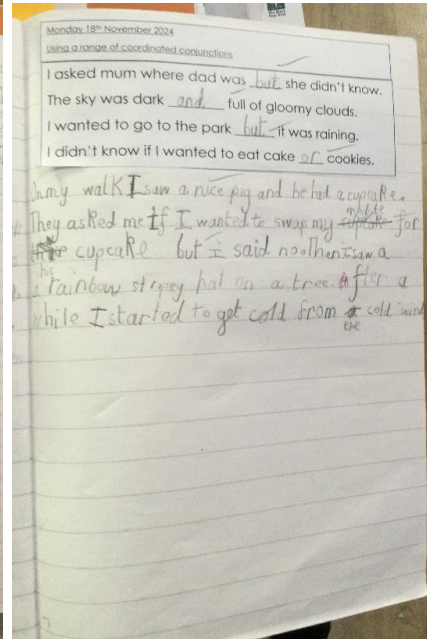 Monday 18th November 2024
Using a range of coordinated conjunctions
I asked mum where dad was but she didn't know.
The sky was dark and full of gloomy clouds.
I wanted to go to the park but it was raining.
I didn't know if I wanted to eat cake or cookies.
On my walk I saw a nice pig and he had a cupcake.
They asked me if I wanted to swap my for
his cupcake but i said no. Then I saw a
rainbow stripey hat on a tree. After a
while I started to get cold from the cold wind